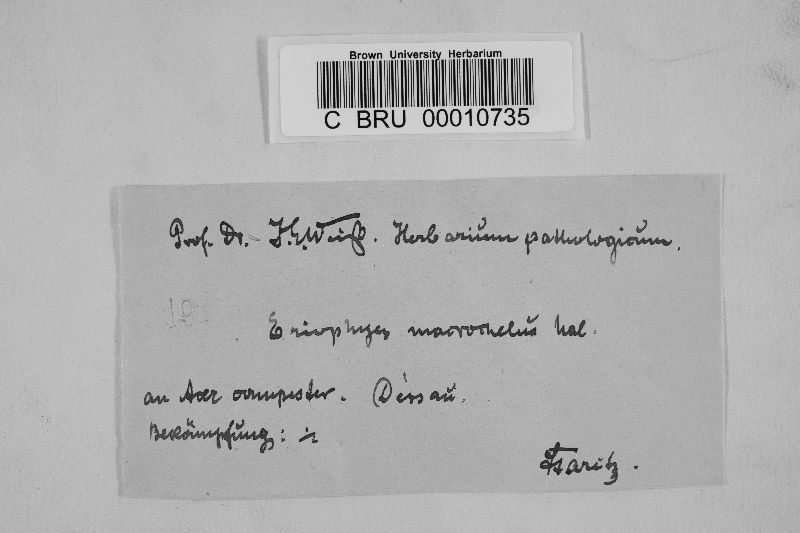 Brown University Herbarium
C BRU 00010735
Prof. Dr. J. E. Weiß. Herbarium pathologicum.
19
Eriophyes macrochelus Nal.
an Acer campester. Dessau.
Bekämpfung: ÷
Staritz.